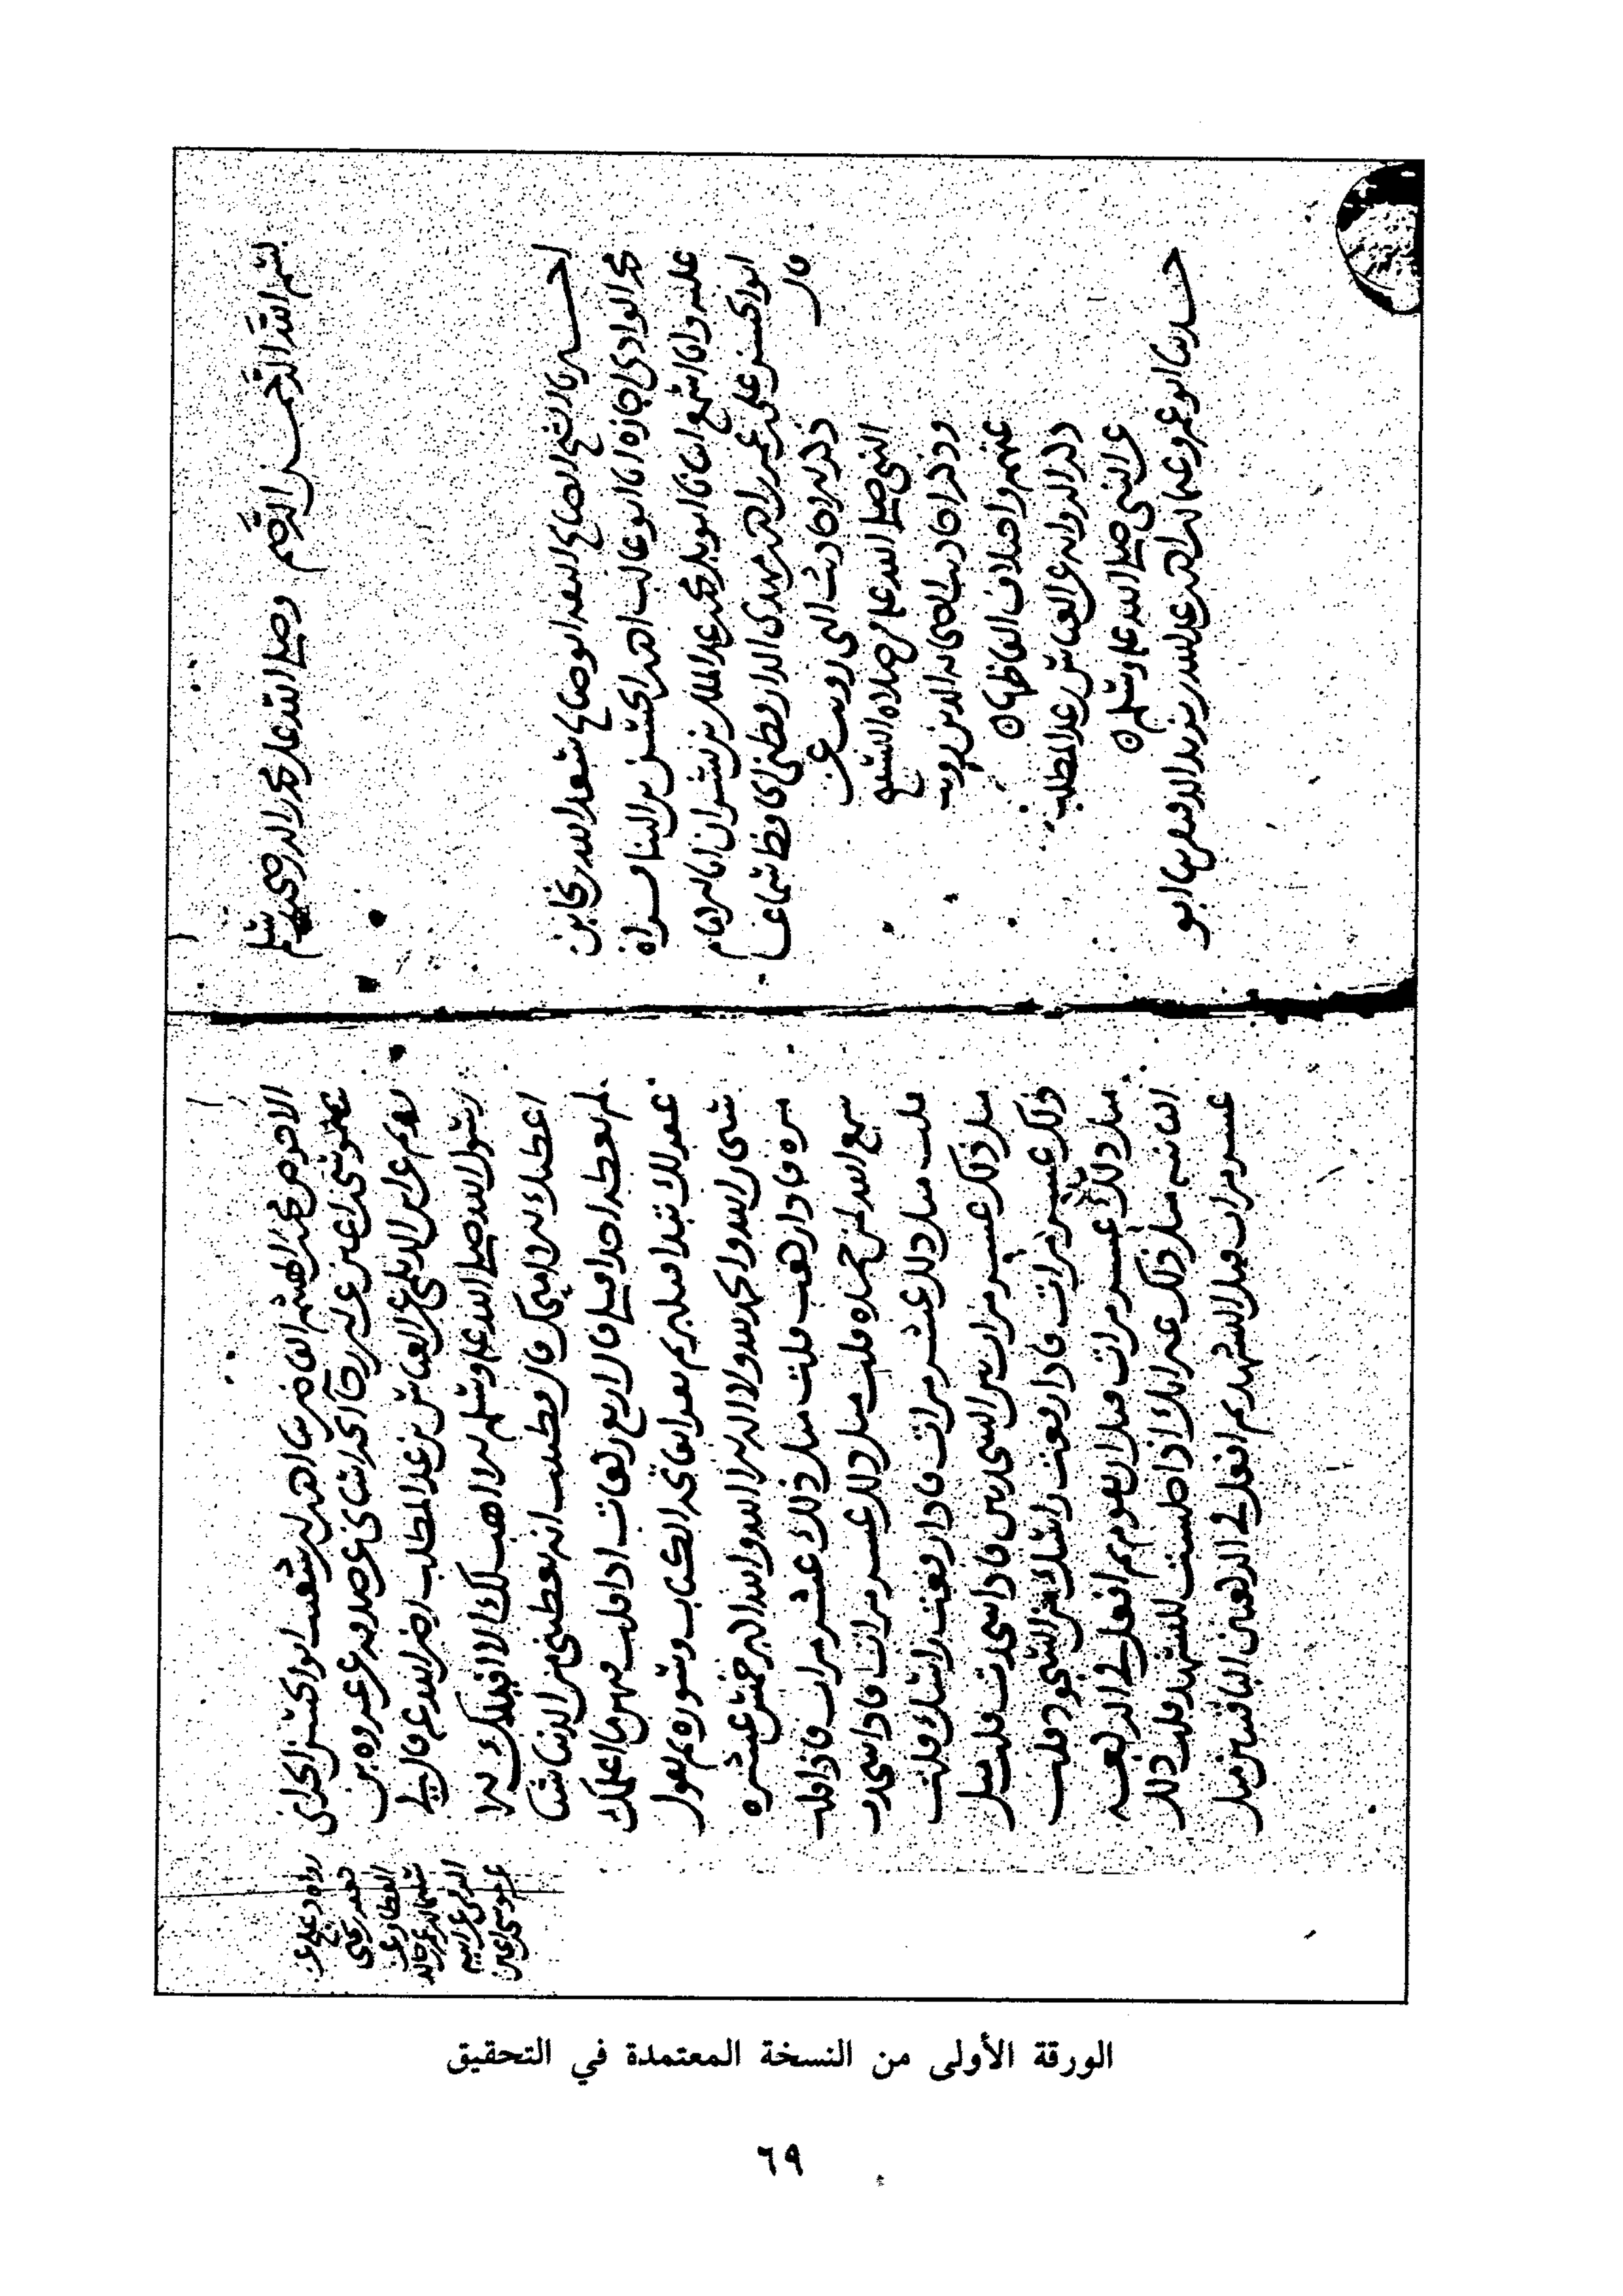 بسم الله الرحمن الرحيم وصلى الله على محمد اله وصحبه وسلم
الشيخ الصالح ابو صالح سعد الله بن نجا بن
محمد الوادى اجازه انا ابو غالب احمد بن الحسن بن البنا قراة
عليه وانا اسمع انبانا ابو بكر محمد عبد الملك بن بشران انا الامام
ابو الحسن على بن عمر بن احمد بن مهدى الدارقطنى الحافظ
قال ذكر الاحاديث التى رويت عن
النبى صلى الله عل صلاه التسبيح
وذكر احاديث الذين رويت
عنهم واختلاف الفاظها
ذكر الروايه عن العباس بن عبد المطلب
عن النبى صلى الله عل وسلم
حدثنا ابو عمرو عثمان بن احمد بن عبد الله بن يزيد الدقاق ابو
الاحوص محمد بن الهيثم القاضى احمد بن ابى شعيب ابو الحسن الحرانى
موسى بن اعين عن ابى رجا الخراسانى عن صدقه عن عروه بن
رويم عن ابن الديلمى عن العباس بن عبد المطلب رضى الله عنه قال لى
رسول الله صلى الله عل وسلم الا اهب لك الا
اعطيك الا امنحك قال فظننت انه يعطينى من الدنيا شيا
لم يعطه احدا قبلى قال اربع ركعات اذا قلت فيهن ما اعلمك
غفر لك تبدا فتكبر ثم تقرا بفاتحه الكتاب وسوره ثم تقول
سبحان الله والحمد لله ولا اله الا الله والله اكبر خمس عشره
مره فاذا ركعت قلت مثل ذلك عشر مرات فاذا قلت
سمع الله لمن حمده قلت مثل ذلك عشر مرات فاذا سجدت
قلت مثل ذلك عشر مرات فاذا رفعت راسك قلت
مثل ذلك عشر مرات بين السجدتين فاذا سجدت قلت مثل
ذلك عشر مرات فاذا رفعت راسك من السجود قلت
مثل ذلك عشر مرات قبل ان تقوم ثم افعل فى الركعه
الثانيه مثل ذلك غير انك اذا جلست للتشهد قلت ذلك
عشر مرات قبل التشهد ثم افعل فى الركعتين الباقيتين مثل
رواه دعلج عن
العطار عن
الورقة الأولى من النسخة المعتمدة في التحقيق
٦٩